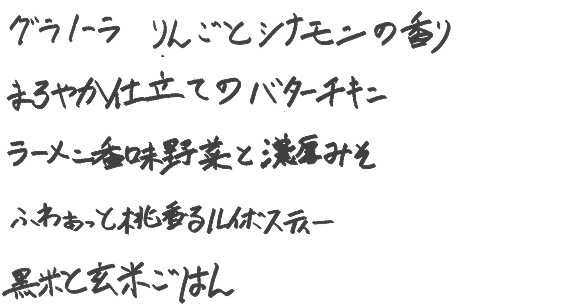 グラノーラ りんごとシナモンの香り
まろやか仕立てのバターチキン
ラーメン香味野菜と濃厚みそ
ふわぁっと桃香るルイボスティー
黒米と玄米ごはん